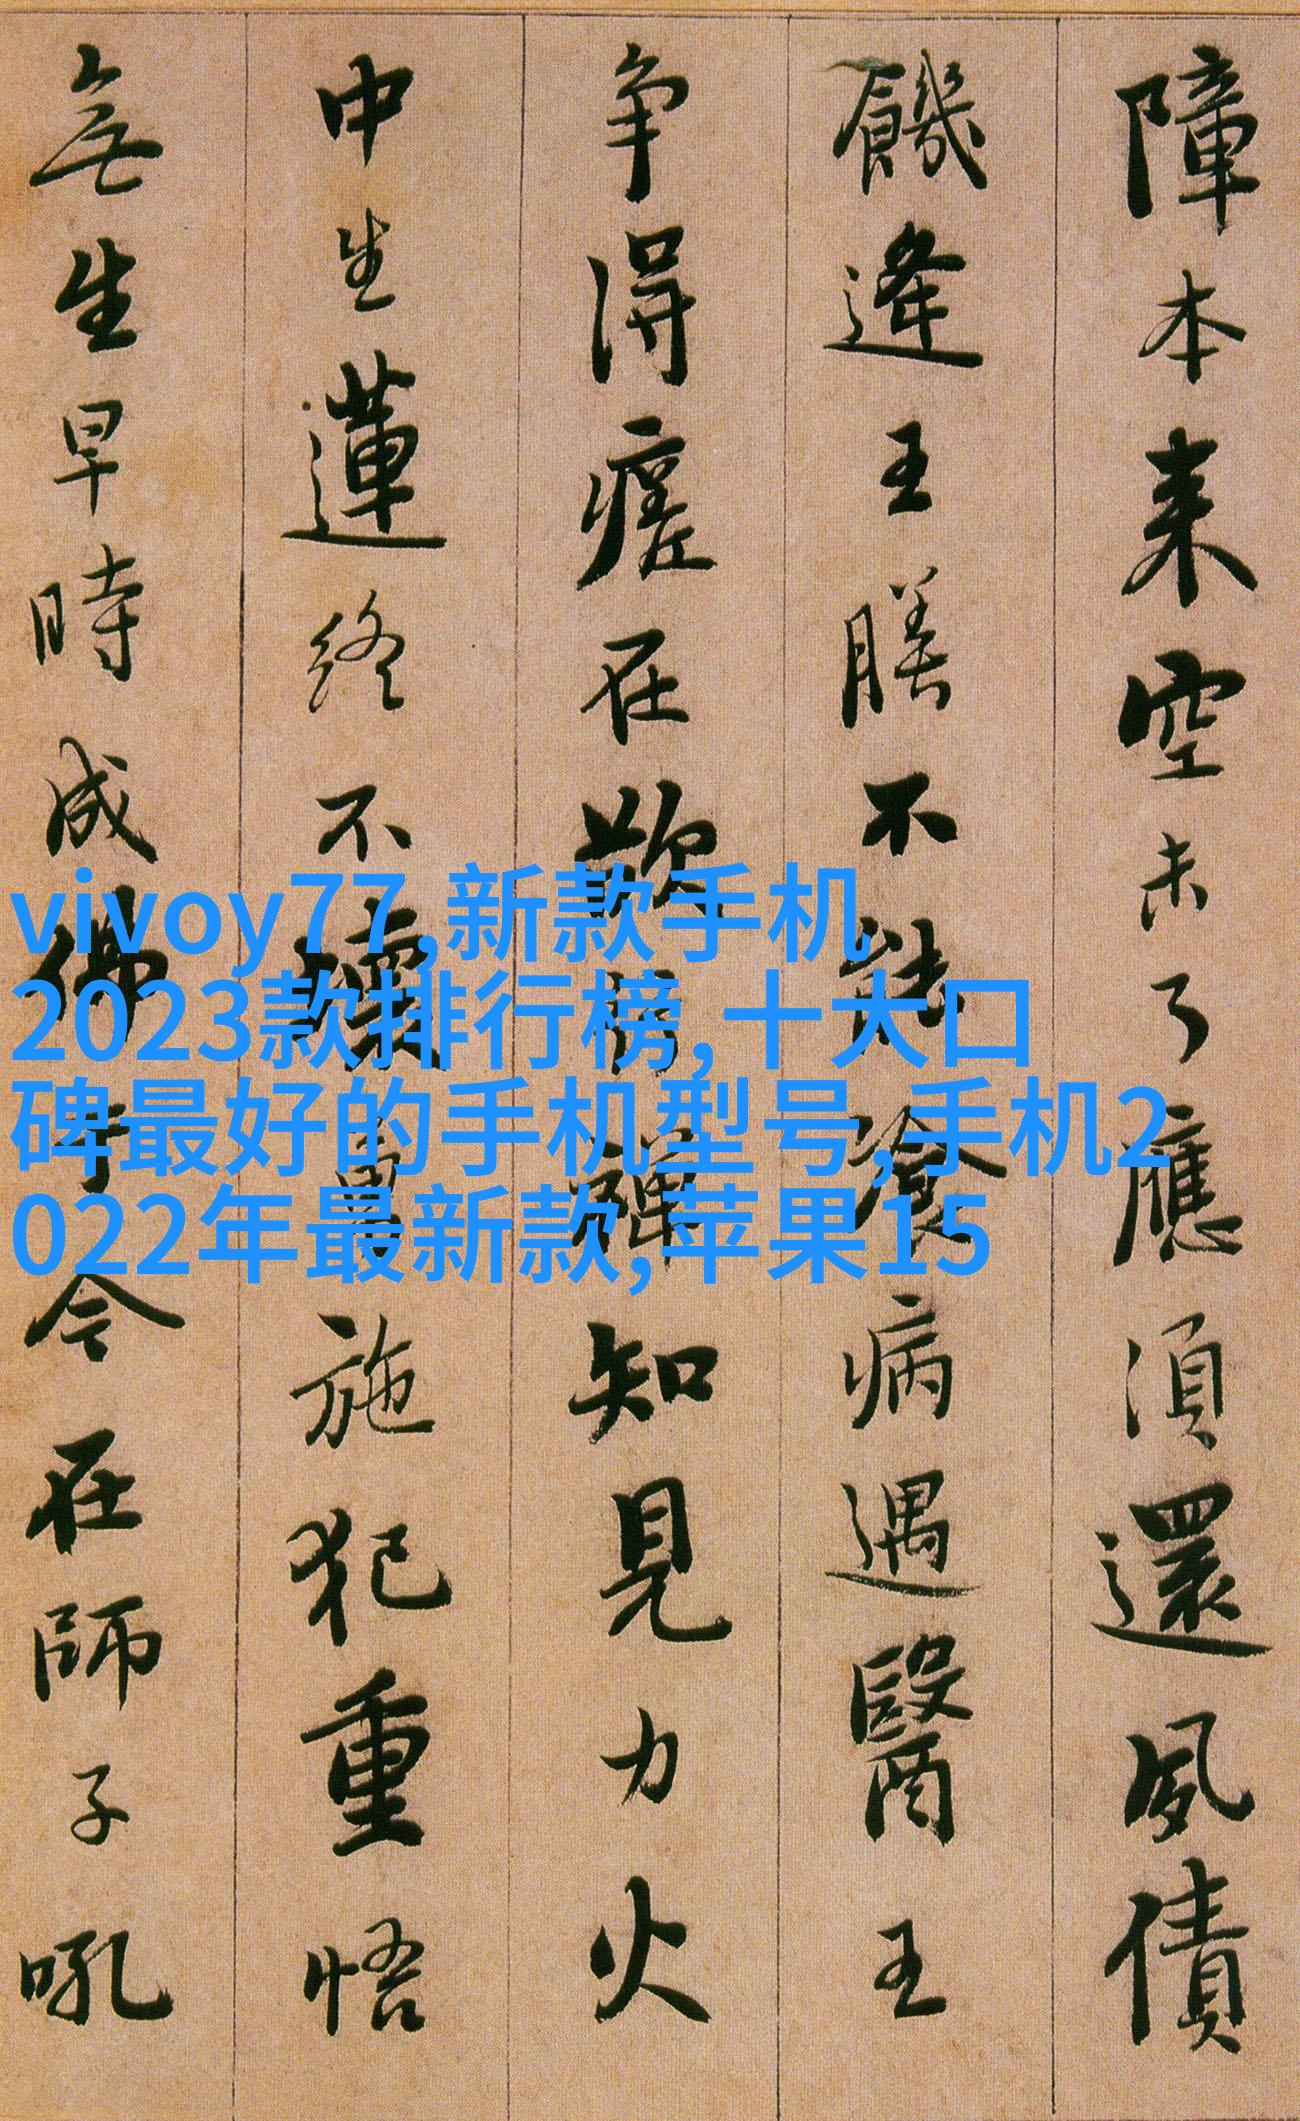 障本来空未了應湏還夙債
饑逢王膳不能飡病遇醫王
争得瘥在欲行禪知見力火
中生蓮終不壞勇施犯重悟
無生早時成佛于今在師子吼
vivoy77,新款手机
2023款排行榜,十大口
碑最好的手机型号,手机2
022年最新款,苹果15